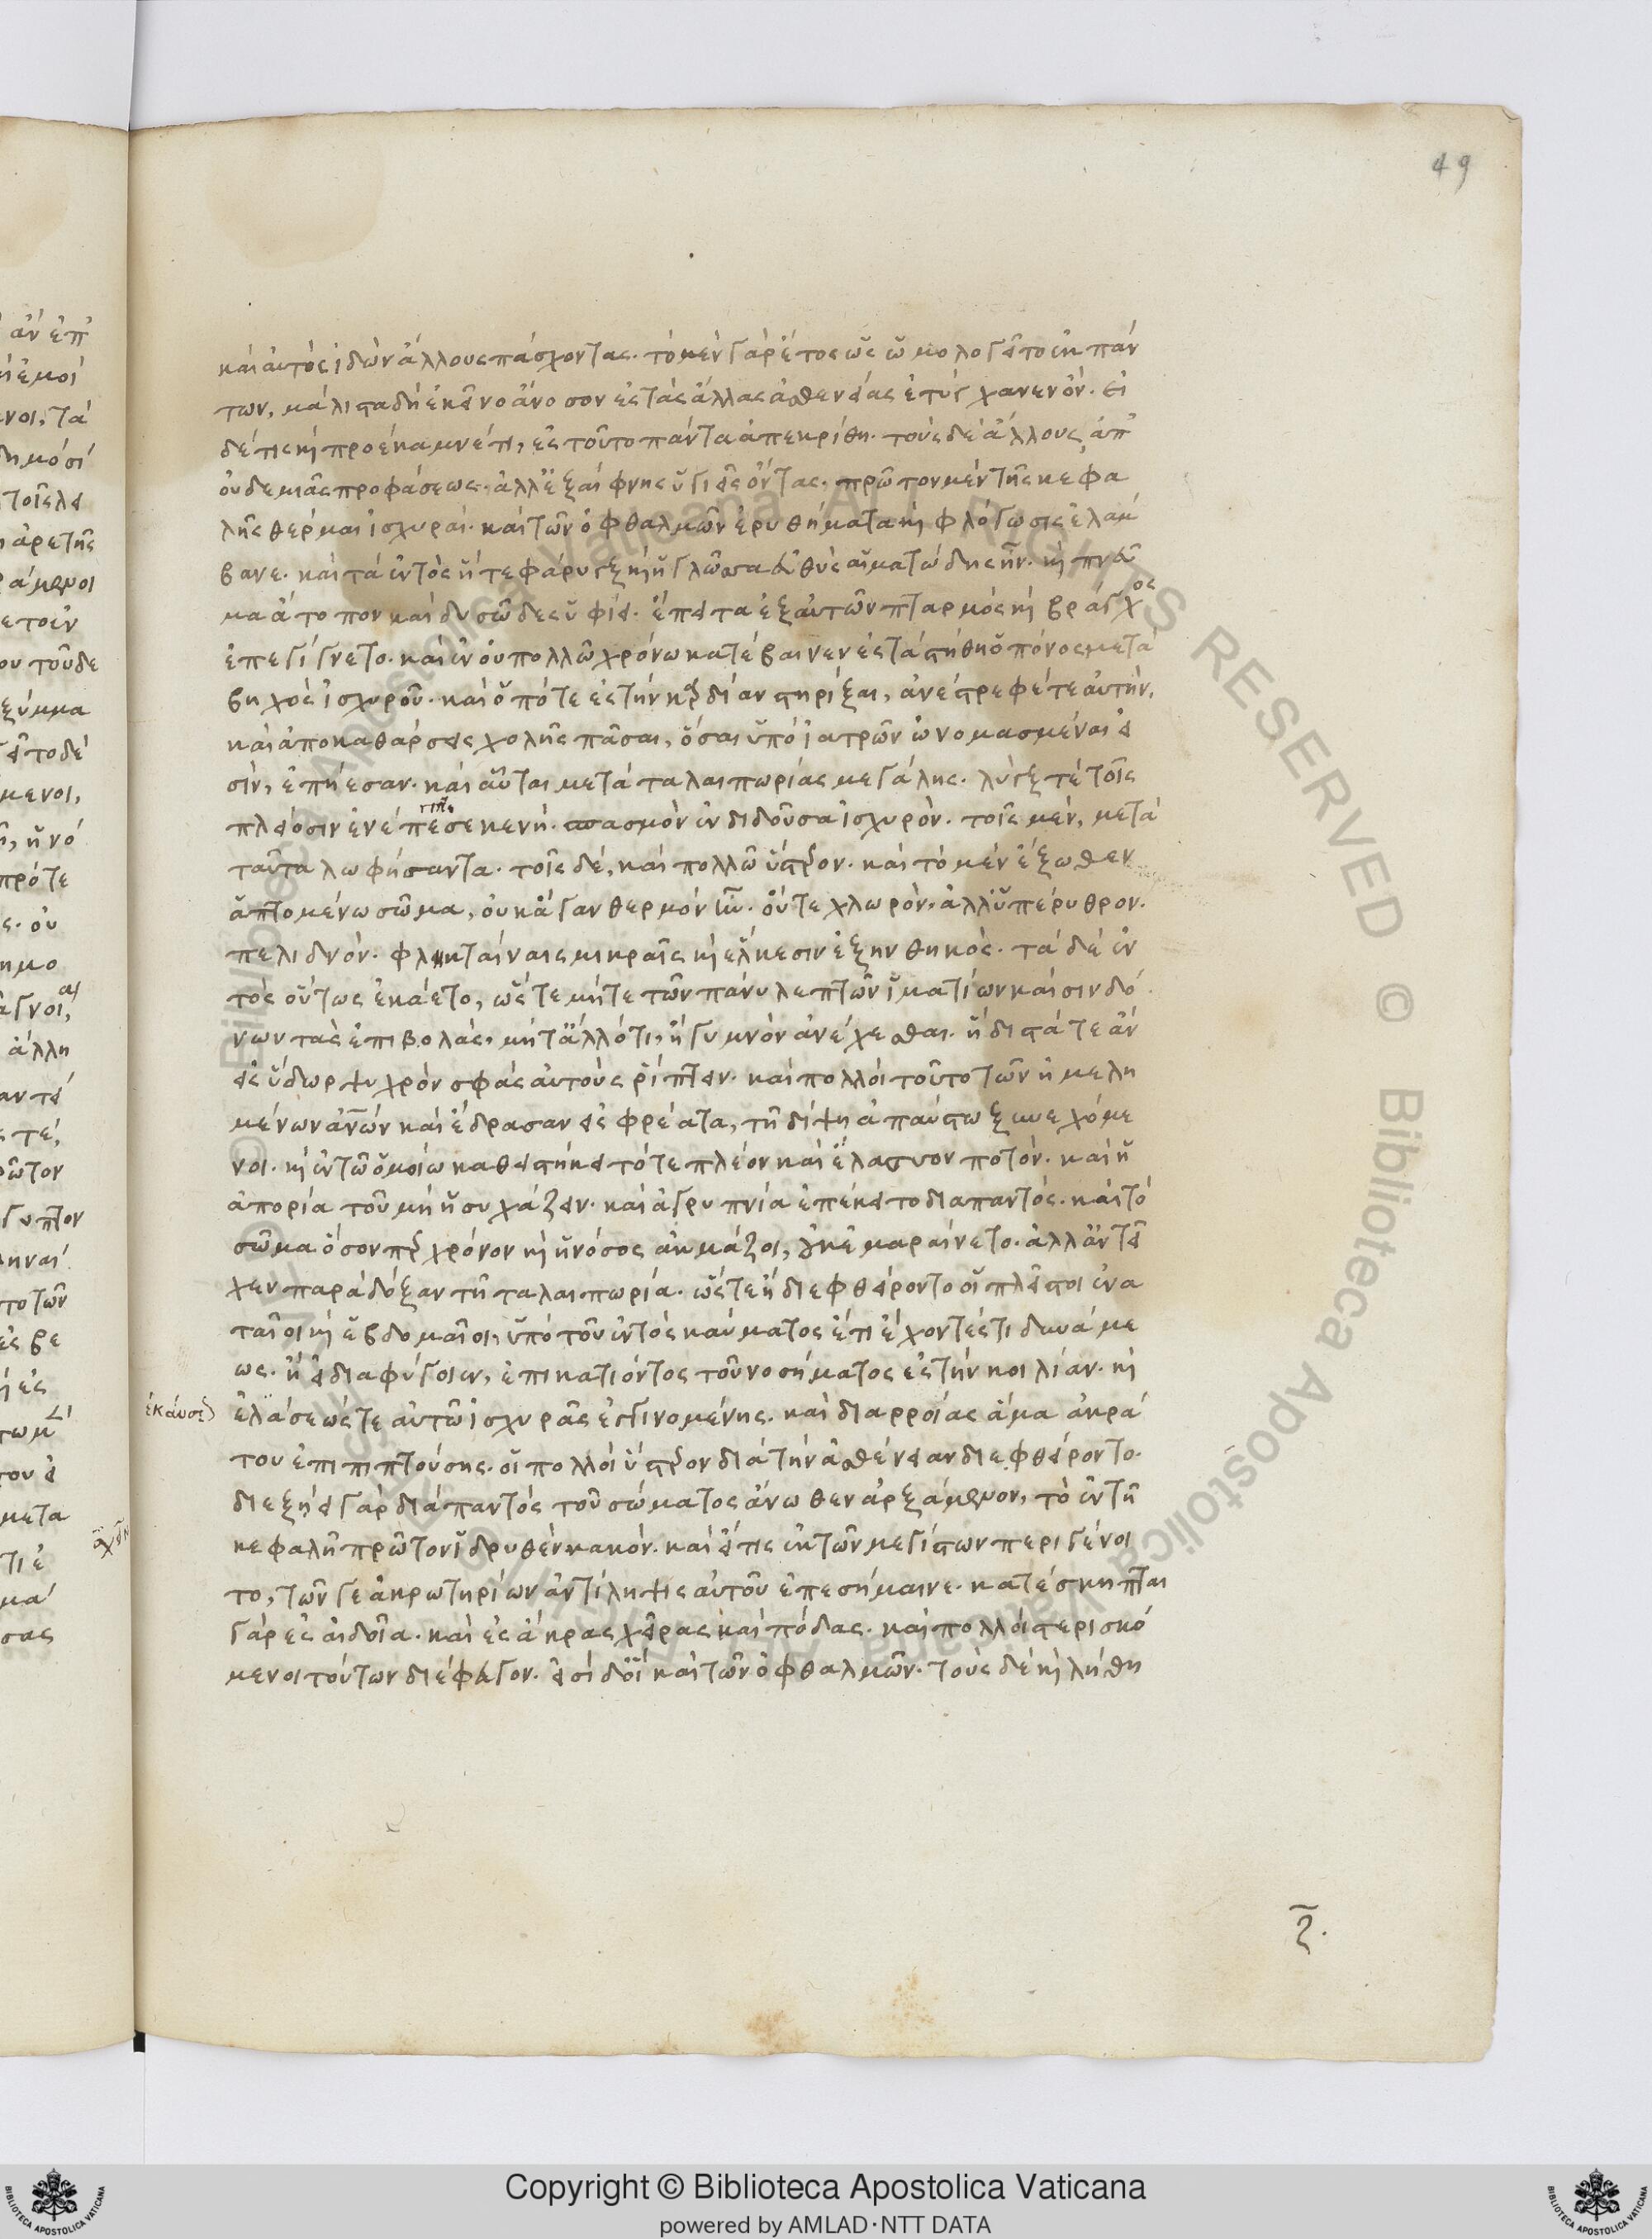 49
καὶ αὐτὸς ἰδὼν ἄλλους πάσχοντας. τὸ μὲν γὰρ ἔτος ὡς ὡμολογεῖτο ἐκ πάν
των, μάλιστα δὴ ἐκεῖνο ἄνοσον ἐς τὰς ἄλλας ἀσθενείας ἐτύγχανεν ὄν. εἰ
δέ τις κὴ προέκαμνέ τι, ἐς τοῦτο πάντα ἀπεκρίθη. τοὺς δὲ ἄλλους ἀπ'
οὐδεμιᾶς προφάσεως. ἀλλ' ἐξαίφνης ὑγιεῖς ὄντας. πρῶτον μὲν τῆς κεφα
λῆς θέρμαι ἰσχυραί. καὶ τῶν ὀφθαλμῶν ἐρυθήματα κὴ φλόγωσις ἐλάμ
βανε. καὶ τὰ ἐντὸς ἥ τε φάρυγξ κὴ ἡ γλῶσσα εὐθὺς αἱματώδης ἦν. κὴ πνεῦ
μα ἄτοπον καὶ δυσῶδες ἠφίει. ἔπειτα ἐξ αὐτῶν πταρμὸς κὴ βράγχος
ἐπεγίγνετο. καὶ ἐν οὐ πολλῶ χρόνω κατέβαινεν ἐς τὰ στήθη ὁ πόνος μετὰ
βηχὸς ἰσχυροῦ. καὶ ὁπότε ἐς τὴν καρδίαν στηρίξαι, ἀνέστρεφέ τε αὐτὴν,
καὶ ἀποκαθάρσεις χολῆς πᾶσαι, ὅσαι ὑπὸ ἰατρῶν ὠνομασμέναι εἰ
σίν, ἐπήεσαν. καὶ αὗται μετὰ ταλαιπωρίας μεγάλης. λύγξ τὲ τοῖς
πλείοσιν ἐνέπεσε κενή. σπασμὸν ἐνδιδοῦσα ἰσχυρόν. τοῖς μὲν, μετὰ
ταῦτα λωφήσαντα. τοῖς δὲ, καὶ πολλῶ ὕστερον. καὶ τὸ μὲν ἔξωθεν
ἁπτομένω σῶμα, οὐκ ἄγαν θερμὸν ἦν. οὔτε χλωρόν. ἀλλ' ὑπέρυθρον.
πελιδνόν. φλυκταίναις μικραῖς κὴ ἕλκεσιν ἐξηνθηκός. τὰ δὲ ἐν
τὸς οὕτως ἐκάετο, ὥστε μήτε τῶν πάνυ λεπτῶν ἱματίων καὶ σινδό
νων τὰς ἐπιβολὰς, μήτ' ἄλλό τι, ἢ γυμνὸν ἀνέχεσθαι. ἥδιστά τε ἂν
εἰς ὕδωρ ψυχρὸν σφὰς αὐτοὺς ῥίπτειν. καὶ πολλοὶ τοῦτο τῶν ἠμελη
μένων ἀνῶν καὶ ἔδρασαν εἰς φρέατα, τῆ δίψη ἀπαύστω ξυνεχόμε
νοι. κὴ ἐν τῶ ὁμοίω καθειστήκει τό τε πλέον καὶ ἔλασσον ποτόν. καὶ ἡ
ἀπορία τοῦ μὴ ἡσυχάζειν. καὶ ἀγρυπνία ἐπέκειτο διαπαντός. καὶ τὸ
σῶμα ὅσονπερ χρόνον κὴ ἡ νόσος ἀκμάζοι, οὐκ ἐμαραίνετο. ἀλλ' ἀντεῖ
χεν παρὰ δόξαν τῆ ταλαιπωρία. ὥστε ἢ διεφθείροντο οἱ πλεῖστοι ἐνα
ταῖοι κὴ ἑβδομαῖοι, ὑπὸ τοῦ ἐντὸς καύματος ἔτι ἔχοντές τι δυνάμε
ως. ἢ εἰ διαφύγοιεν, ἐπικατιόντος τοῦ νοσήματος ἐς τὴν κοιλίαν. κὴ
ἑλκώσεώς τε αὐτῶ ἰσχυρᾶς ἐγγινομένης. καὶ διαρροίας ἅμα ἀκρά
του ἐπιπιπτούσης. οἱ πολλοὶ ὕστερον διὰ τὴν ἀσθένειαν διεφθείροντο.
διεξήει γὰρ διὰ παντὸς τοῦ σώματος ἄνωθεν ἀρξάμενον, τὸ ἐν τῆ
κεφαλῆ πρῶτον ἱδρυθὲν κακόν. καὶ εἴ τις ἐκ τῶν μεγίστων περιγένοι
το, τῶν γε ἀκρωτηρίων ἀντίληψις αὐτοῦ ἐπεσήμαινε. κατέσκηπται
γὰρ ἐς αἰδοῖα. καὶ ἐς ἄκρας χεῖρας καὶ πόδας. καὶ πολλοὶ στερισκό
μενοι τούτων διέφυγον. εἰσὶ δ' οἳ καὶ τῶν ὀφθαλμῶν. τοὺς δὲ κὴ λήθη
Copyright © Biblioteca Apostolica Vaticana
powered by AMLAD·NTT DATA